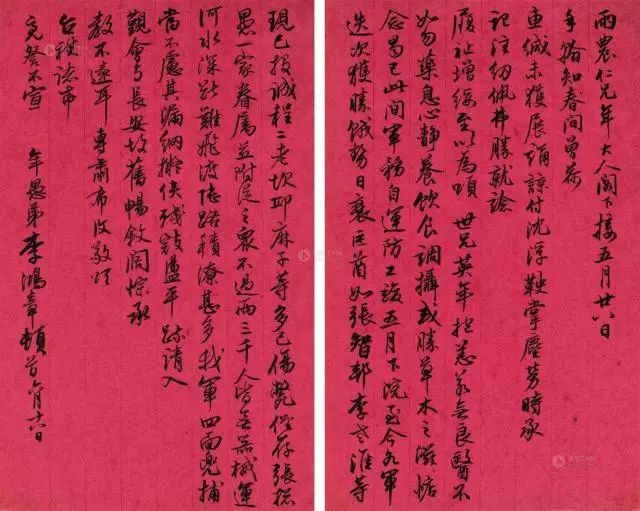 雨農仁兄年大人閣下接五月廿八日
手翰知春間曾荷
惠緘未獲展誦諒付沈浮鞅掌塵勞時承
記注紉佩弗勝就諗
履祉增綏至以為頌 世兄英年抱恙若無良醫不
如勿藥息心靜養飲食調攝或勝草木之滋
念曷已此間軍務自運防工竣五月下浣至今各軍
迭次獲勝賊勢日衰巨酋如張智邨李老淮等
現已投誠程二老坎邱麻子等多已傷斃僅存張總
愚一家眷屬並附從之衆不過兩三千人皆無器械運
河水深斷難飛渡陸路積潦甚多我軍四面兜捕
當不慮其漏網擬俟殘敵盪平 疏請入
覲會與長安故舊暢敘闊悰承
教不遠耳 專肅布復敬頌
台祺諸希
亮詧不宣
年愚弟李鴻章頓首 六月十六日